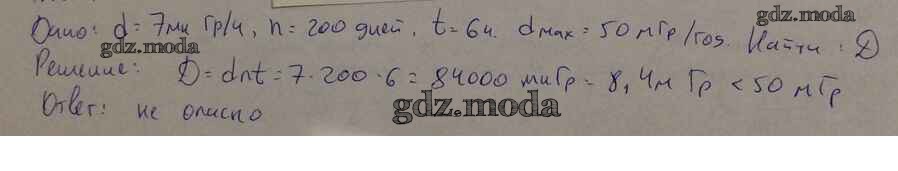 Дано: d = 7мк Гр/ч, n = 200 дней, t = 6ч. dмах = 50 мГр/год. Найти: D
gdz.moda
gdz.moda
Решение: D = dnt = 7·200·6 = 84000 мкГр = 8,4м Гр < 50 мГр
Ответ: не опасно
gdz.moda